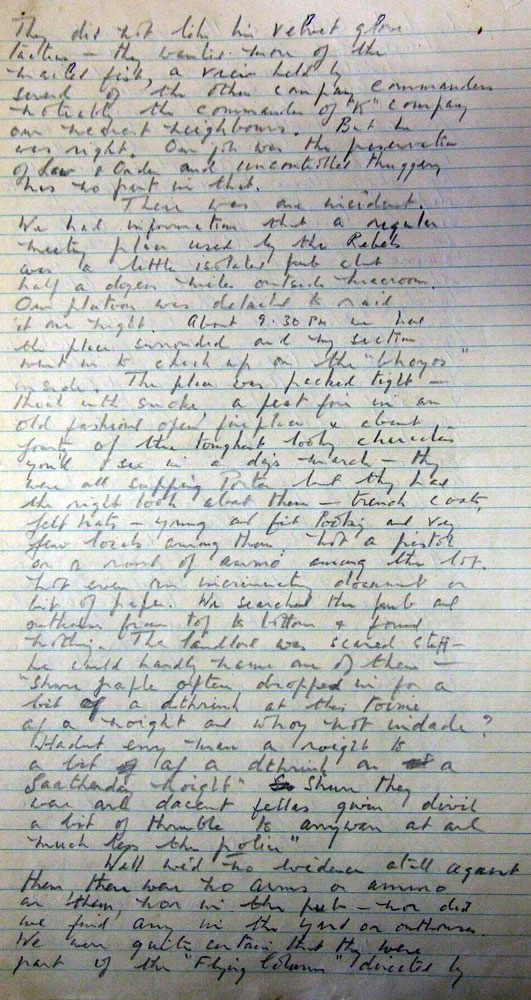 They did not like his velvet glove
tactics – they wanted more of the
mailed fist, a view held by
several of the other company commanders
notably the commander of "K" company
our nearest neighbours. But he
was right. Our job was the preservation
of Law & Order and uncontrolled thuggery
has no part in that.
There was one incident.
We had information that a regular
meeting place used by the Rebels
was a little isolated pub about
half a dozen miles outside Macroom.
Our platoon was detailed to raid
it one night. About 9.30 PM we had
the place surrounded and my section
went in to check up on the "bhoyos"
inside. The place was packed tight –
thick with smoke, a peat fire in an
old fashioned open fireplace & about
forty of the toughest looking characters
you'll see in a days march – they
were all supping Porter but they had
the right look about them – trench coats,
felt hats – young and fit looking and very
few locals among them. Not a pistol
or a round of ammo among the lot.
Not even an incriminating document or
bit of paper. We searched the pub and
outhouses from top to bottom & found
nothing. The landlord was scared stiff –
he could hardly name one of them –
"Shure paple often dropped in for a
bit of a dthrink at this toime
af a noight and whoy not indade?
Hadnt enny man a roight to
a bit af a dthrink an a
Saatherday noight" Shure they
war all dacent fellas givin divil
a bit of thruble to anywan at all
much less the police"
Well we'd no evidence atall against
them, there was no arms or ammo
on them, nor in the pub – nor did
we find any in the yard or outhouses.
We were quite certain that they were
part of the "Flying Column" directed by